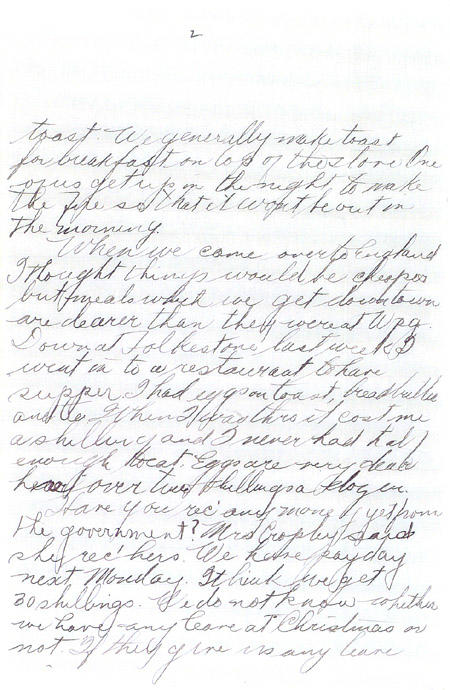 2
toast. We generally make toast
for breakfast on top of the stove One
of us get up in the night to make
the fire so that it wont be out in
the morning.
When we came over to England
I thought things would be cheaper
but meals which we get downtown
are dearer than they were at Wpg.
Down at Folkestone last week I
went in to a restaurant to have
supper. I had eggs on toast, bread butter
and tea. When I was thro it cost me
a shilling and I never had half
enough to eat. Eggs are very dear
here over two shillings a dozen.
Have you rec'd any money yet from
the government? Mrs Cropley said
she rec'd hers. We have payday
next Monday. I think we get
30 shillings. We do not know whether
we have any leave at Christmas or
not. If they give us any leave